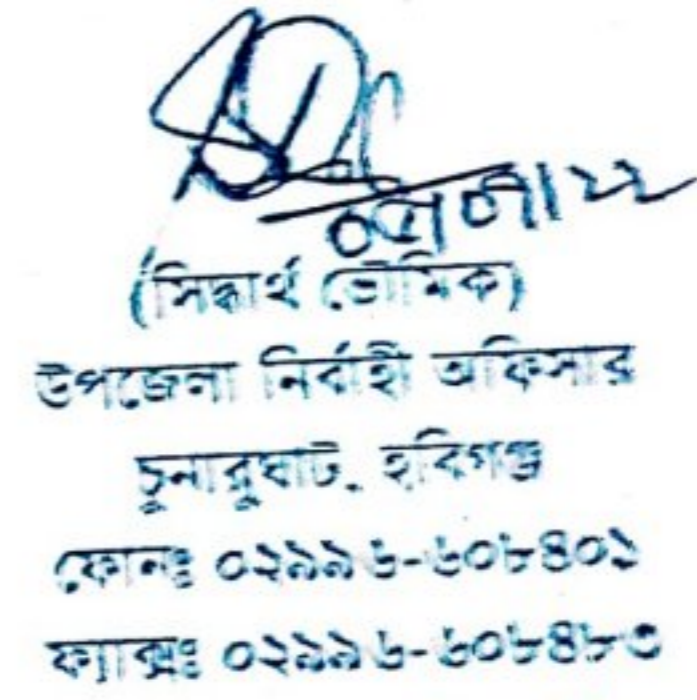 (সিদ্ধার্থ ভৌমিক)
উপজেলা নির্বাহী অফিসার
চুনারুঘাট, হবিগঞ্জ
ফোনঃ ০২৯৯৬-৬০৮৪০১
ফ্যাক্সঃ ০২৯৯৬-৬০৮৪৮৩